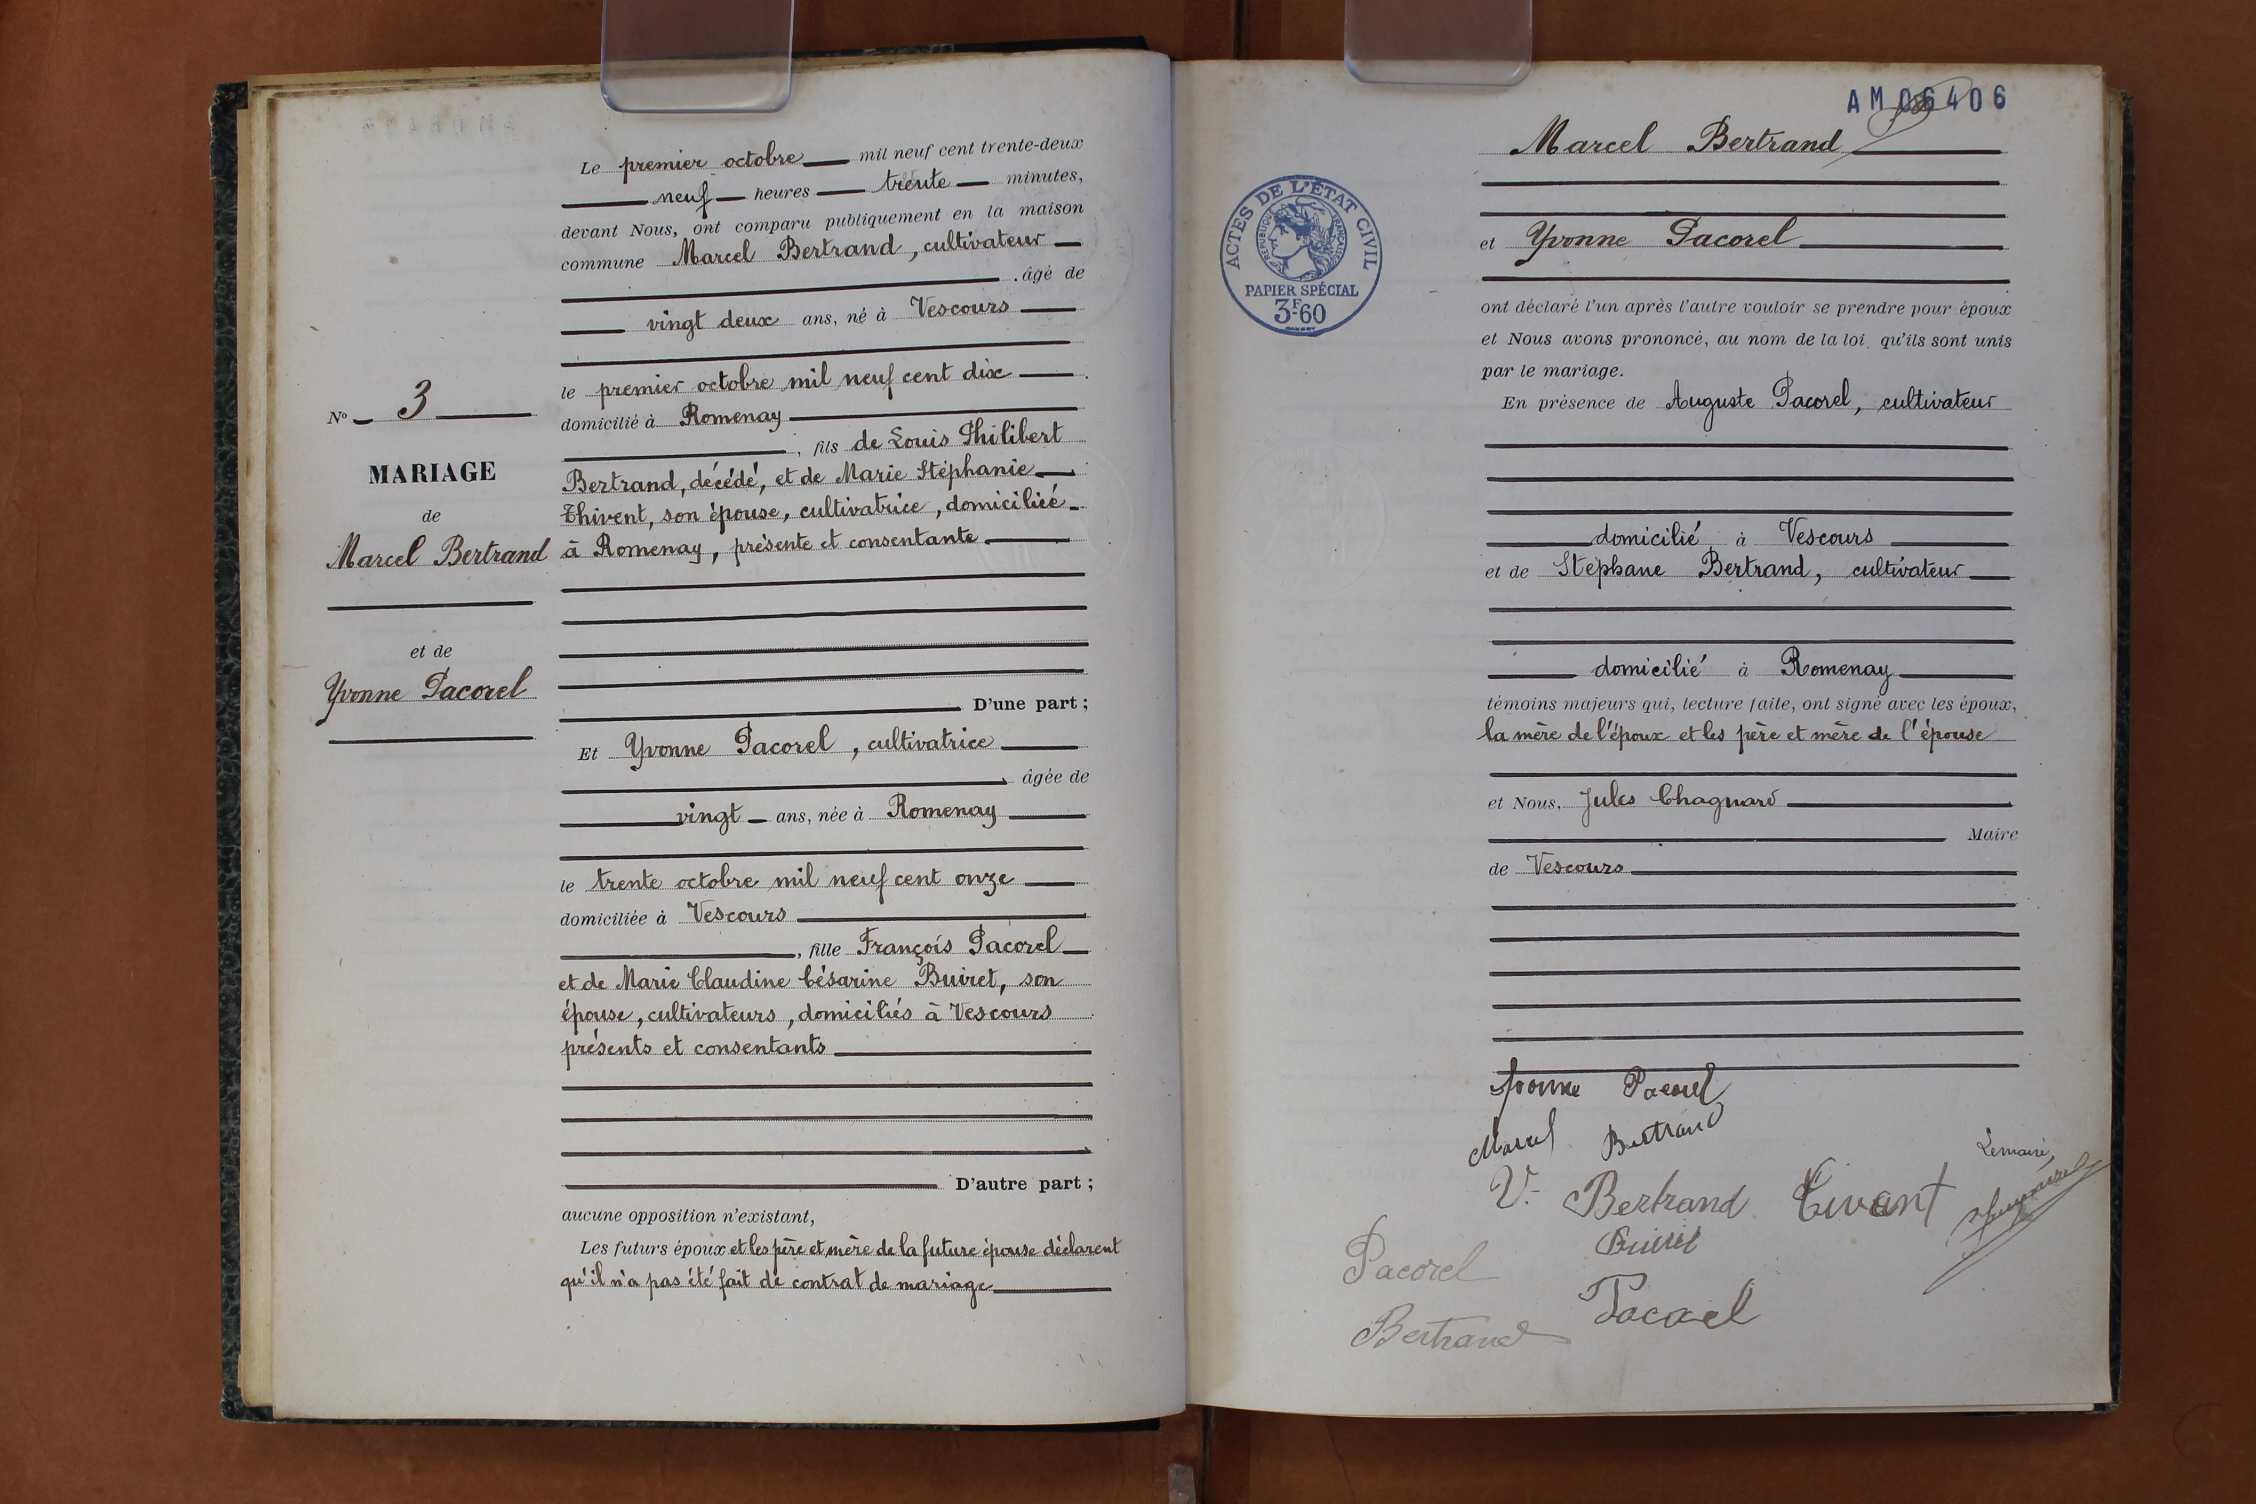 Le premier octobre mil neuf cent trente-deux
neuf heures trente minutes,
devant Nous, ont comparu publiquement en la maison
commune Marcel Bertrand, cultivateur
âgé de
vingt deux ans, né à Vescours
le premier octobre mil neuf cent dix
domicilié à Romenay
, fils de Louis Philibert
Bertrand, décédé, et de Marie Stéphanie
Thivent, son épouse, cultivatrice, domiciliée
à Romenay, présente et consentante
D'une part ;
Et Yvonne Pacorel, cultivatrice
âgée de
vingt ans, née à Romenay
le trente octobre mil neuf cent onze
domiciliée à Vescours
, fille François Pacorel
et de Marie Claudine Césarine Buiret, son
épouse, cultivateurs, domiciliés à Vescours
présents et consentants
D'autre part ;
aucune opposition n'existant,
Les futurs époux et les père et mère de la future épouse déclarent
qu'il n'a pas été fait de contrat de mariage
No 3
MARIAGE
de
Marcel Bertrand
et de
Yvonne Pacorel
AM06406
ACTES DE L'ÉTAT CIVIL
RÉPUBLIQUE FRANÇAISE
PAPIER SPÉCIAL
3F60
Marcel Bertrand
et Yvonne Pacorel
ont déclaré l'un après l'autre vouloir se prendre pour époux
et Nous avons prononcé, au nom de la loi, qu'ils sont unis
par le mariage.
En présence de Auguste Pacorel, cultivateur
domicilié à Vescours
et de Stéphane Bertrand, cultivateur
domicilié à Romenay
témoins majeurs qui, lecture faite, ont signé avec les époux,
la mère de l'époux et les père et mère de l'épouse
et Nous, Jules Chagnard
Maire
de Vescours
Yvonne Pacorel
Marcel Bertrand
Le maire,
V. Bertrand Tivant
Buiret
Pacorel
Pacorel
Bertrand